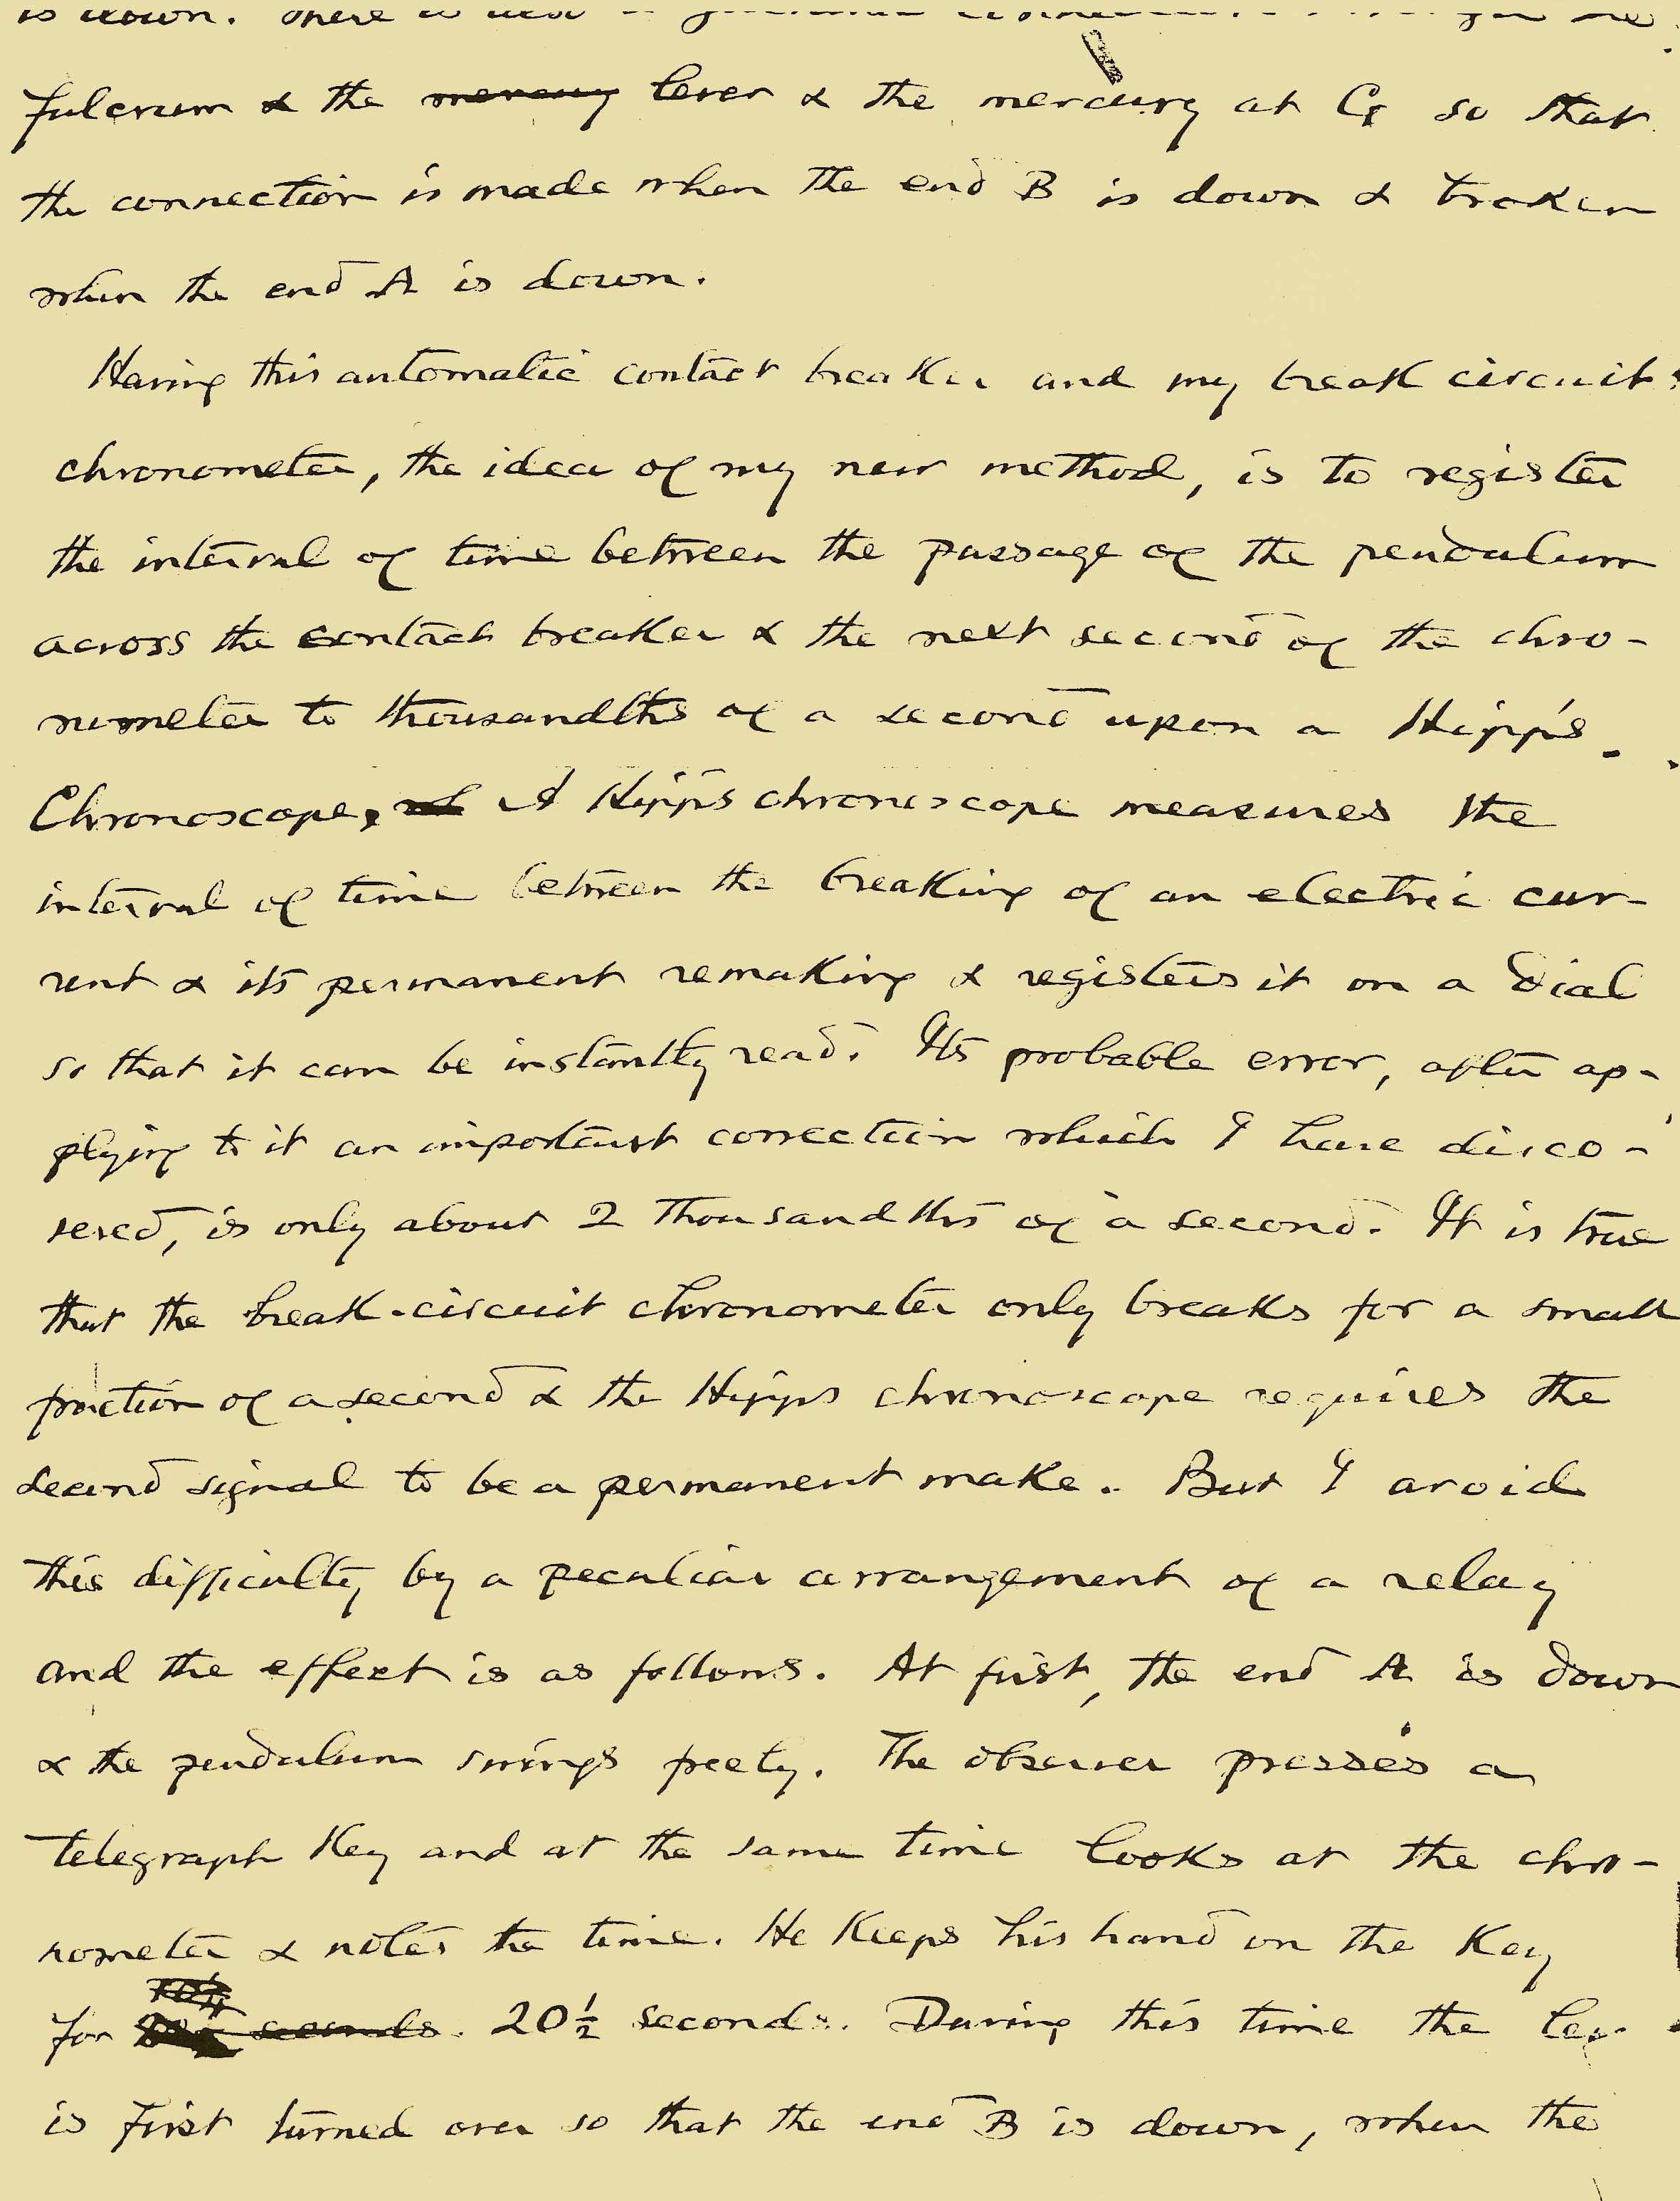 is down. There is also a
fulcrum & the mercury lever & the mercury at G so that
the connection is made when the end B is down & broken
when the end A is down.
Having this automatic contact breaker and my break circuit
chronometer, the idea of my new method, is to register
the interval of time between the passage of the pendulum
across the contact breaker & the next second of the chro-
nometer to thousandths of a second upon a Hipp's
Chronoscope. A Hipp's chronoscope measures the
interval of time between the breaking of an electric cur-
rent & its permanent remaking & registers it on a dial
so that it can be instantly read. Its probable error, after ap-
plying to it an important correction which I have disco-
vered, is only about 2 thousandths of a second. It is true
that the break-circuit chronometer only breaks for a small
fraction of a second & the Hipps chronoscope requires the
second signal to be a permanent make. But I avoid
this difficulty by a peculiar arrangement of a relay
and the effect is as follows. At first, the end A is down
& the pendulum swings freely. The observer presses a
telegraph Key and at the same time looks at the chro-
nometer & notes the time. He Keeps his hand on the Key
for seconds. 20½ seconds. During this time the
is first turned over so that the end B is down, when the